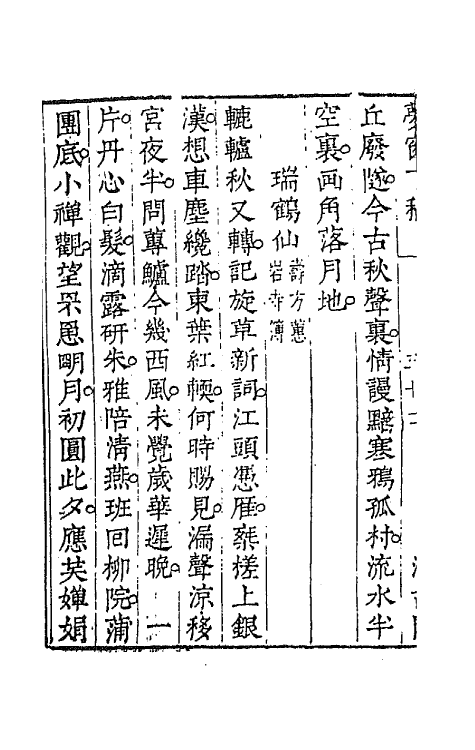 丘廢隧今古秋聲裏情謾黯塞鴉孤村流水半
空裏画角落月地
瑞鶴仙壽方蕙巖寺簿
轆轤秋又轉記旋草新詞江頭憑雁槎上銀
漢想車塵纔踏東華紅輭何時賜見漏聲涼移
宮夜半問蓴鱸今幾西風未覺歲華遲晚一
片丹心白髮滴露研朱雅陪清燕班回柳院蒲
團底小禪觀望罘罳明月初圓此夕應共嬋娟